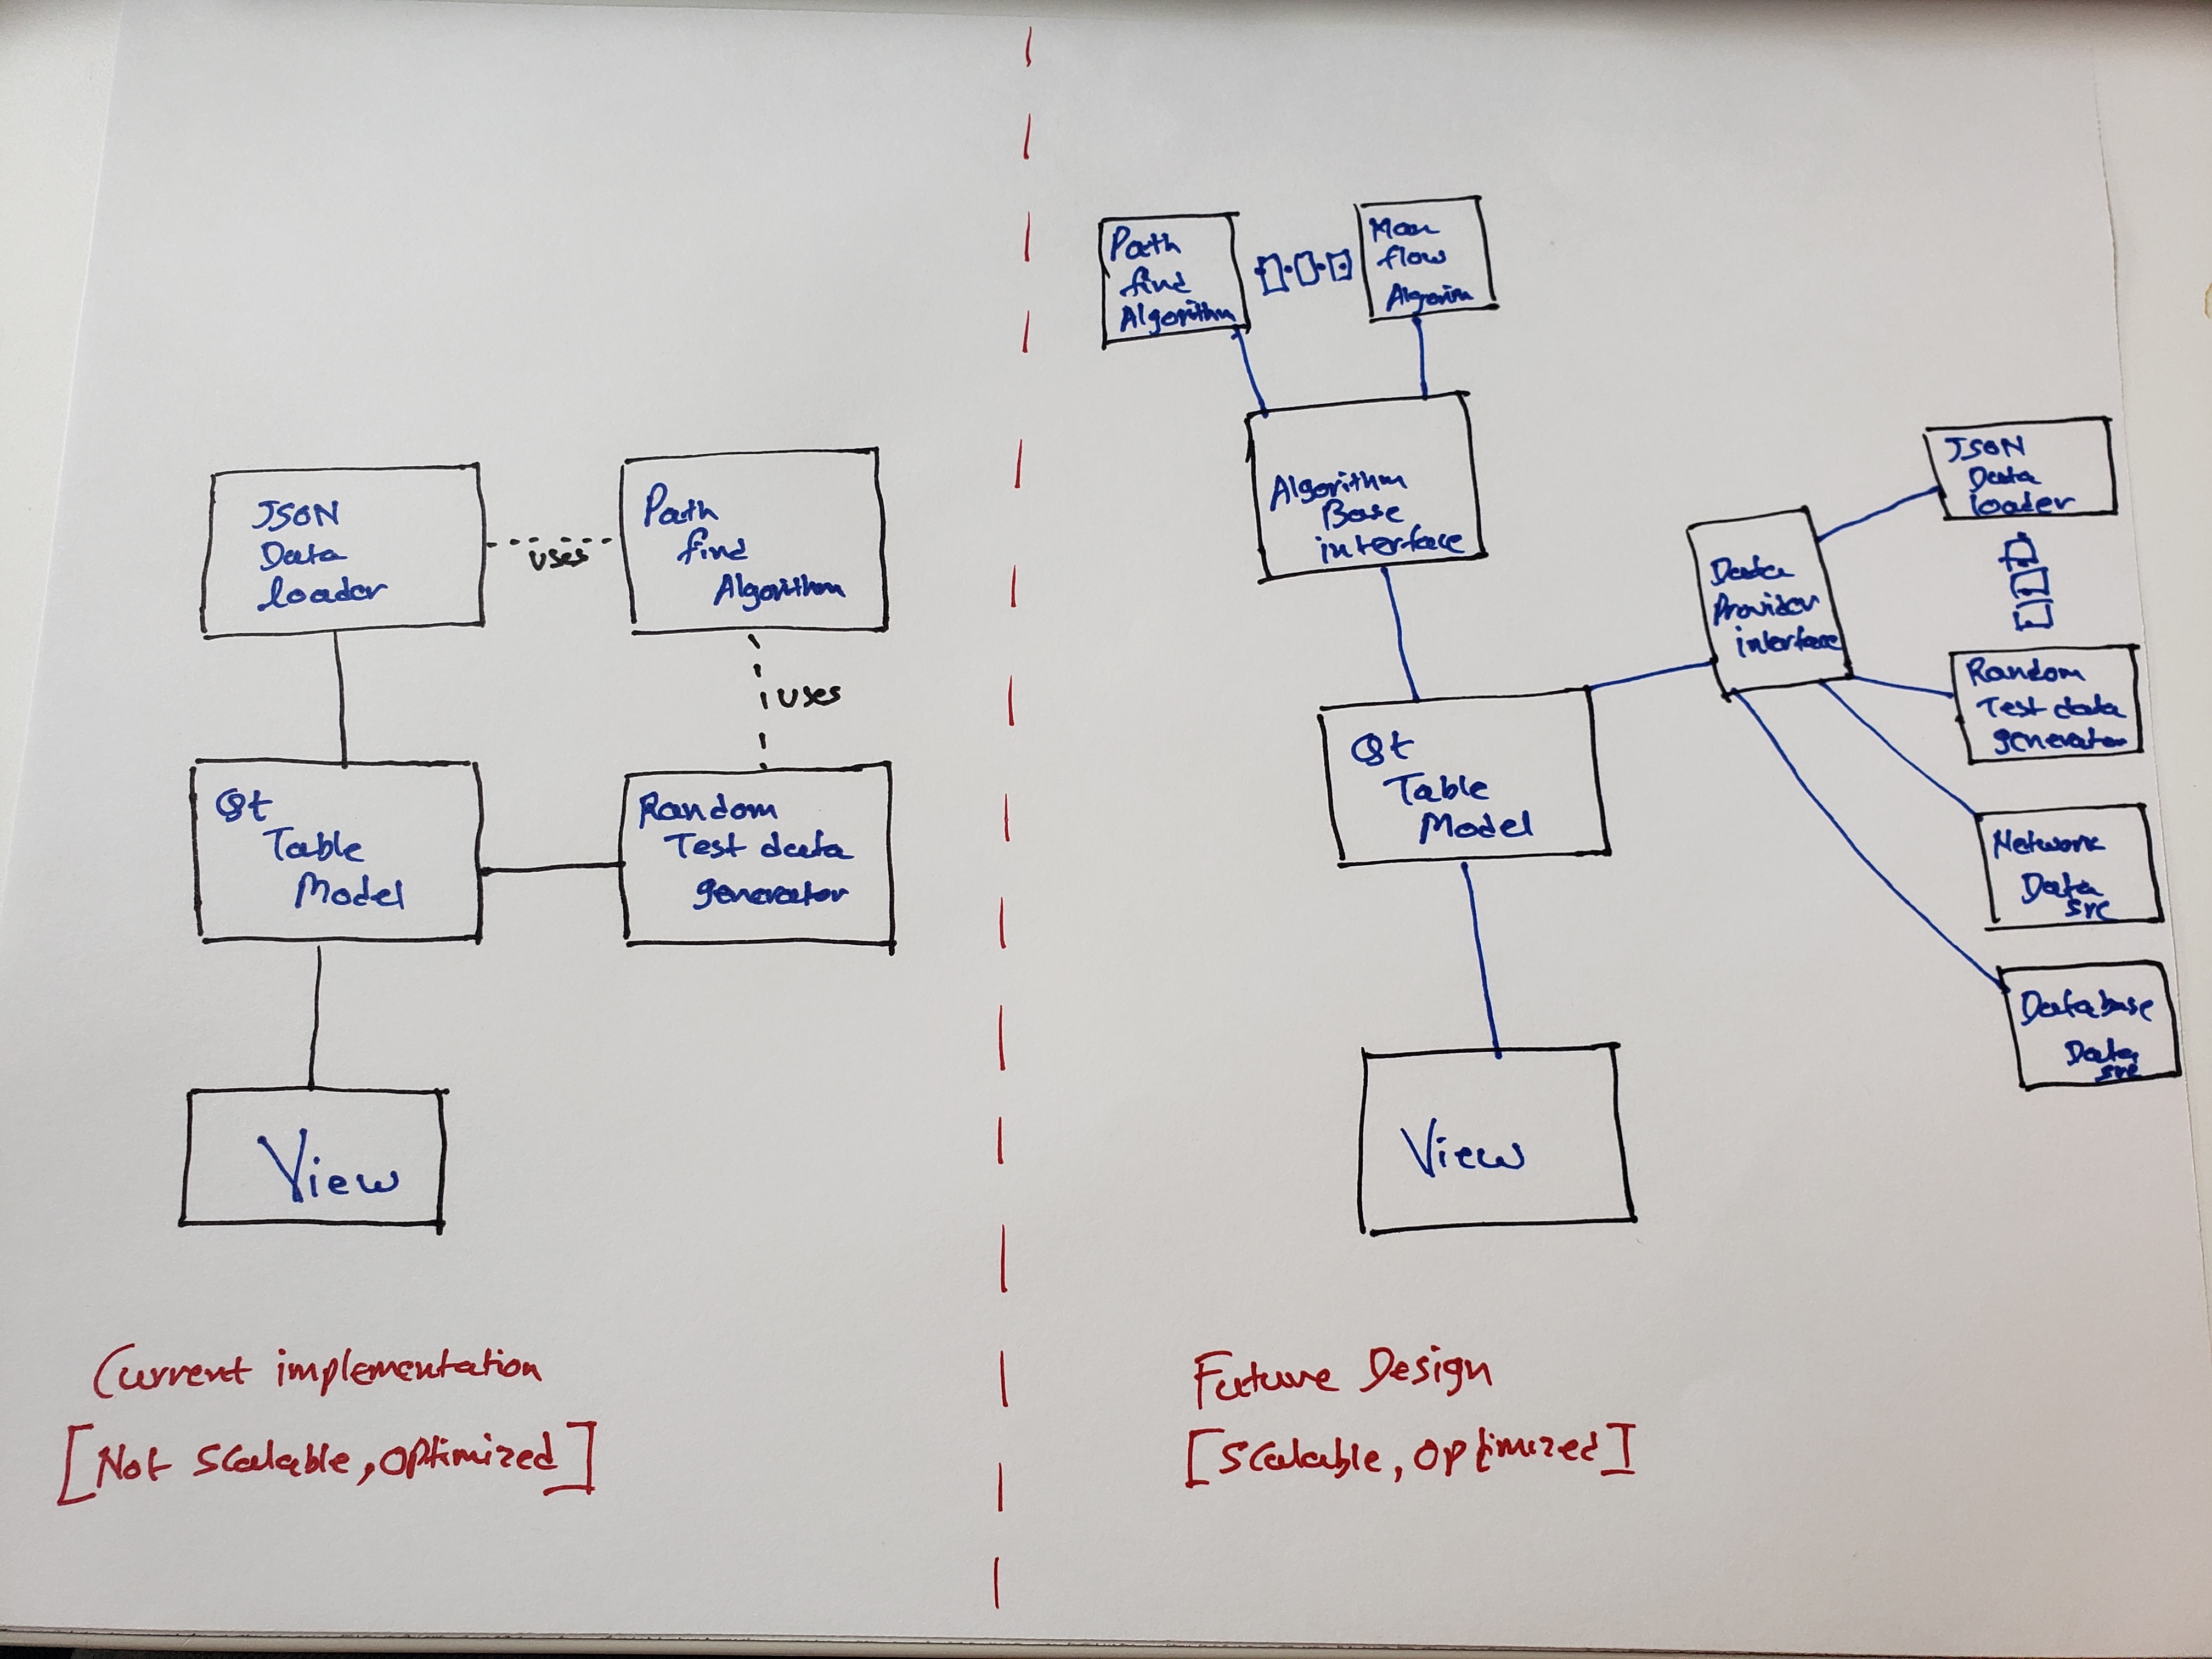 JSON
Data
loader
uses
Path
find
Algorithm
uses
Qt
Table
Model
Random
Test data
generator
View
Current implementation
[Not Scalable, Optimized]
Path
find
Algorithm
flow
Algorithm
Base
interface
Data
Provider
interface
JSON
Data
loader
Random
Test data
generator
Network
Data
src
Database
Data
src
Qt
Table
Model
View
Future Design
[Scalable, Optimized]